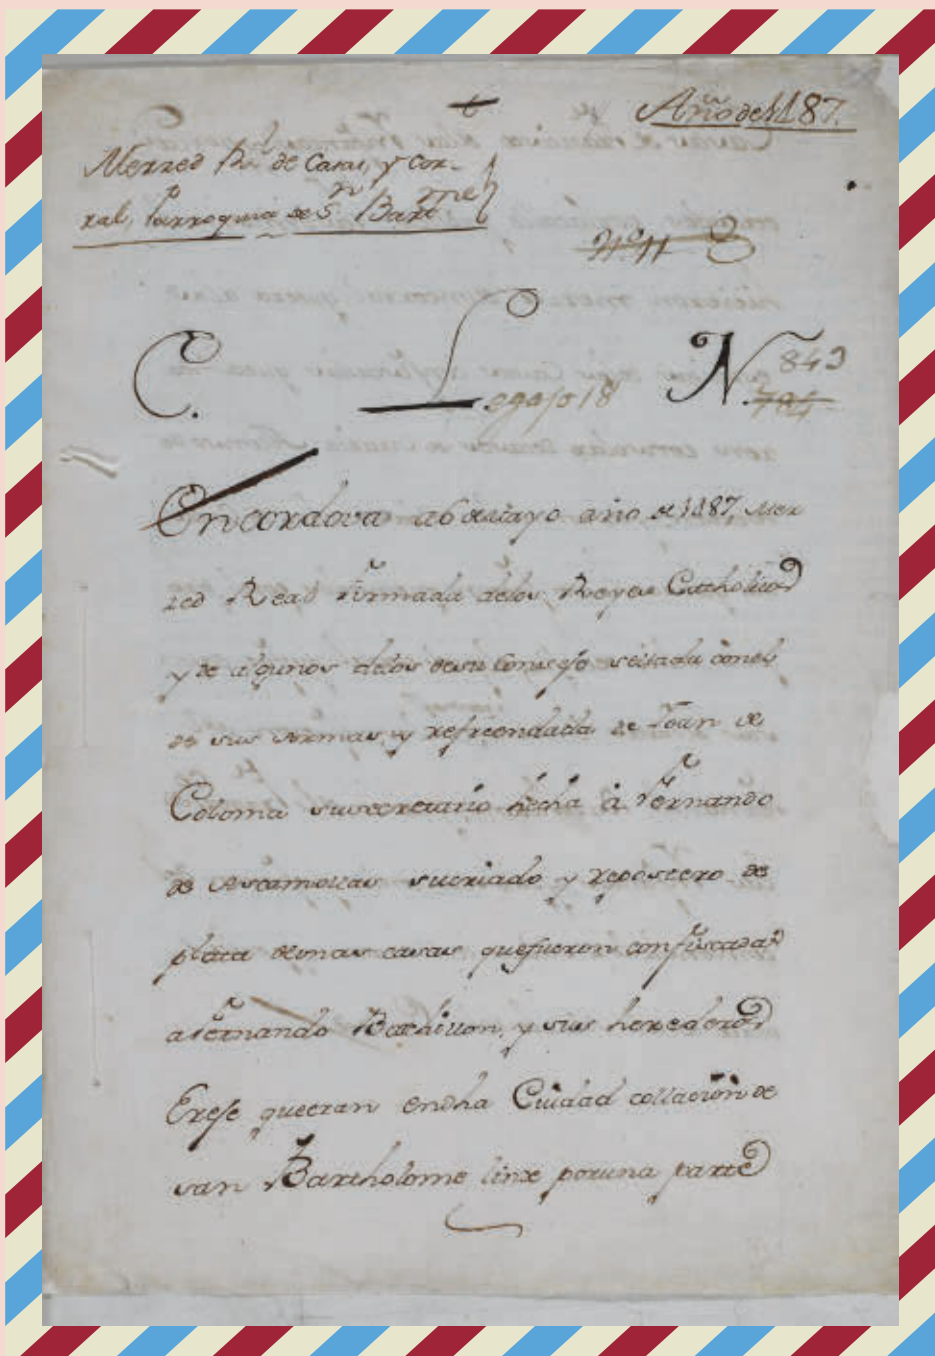 Año de 1487.
Merzed Rl. de Casas, y Cor-
ral, Parroquia de Sn. Barme.
C. L N. 843
Legajo 18 794
En cordova a 6 de Mayo año de 1487, Mer
zed Real firmada delos Reyes Catholicos
y de algunos delos desu Consejo sellada conel
de sus Armas, y refrendada de Joan de
Coloma susecretario fecha â Fernando
de Ascamollas sucriado y repostero de
plata deunas casas quefueron confiscadas
a Fernando Bachillon, y sus herederos
Ereje queeran endha Ciudad collacion de
san Bartholome linx poruna parte